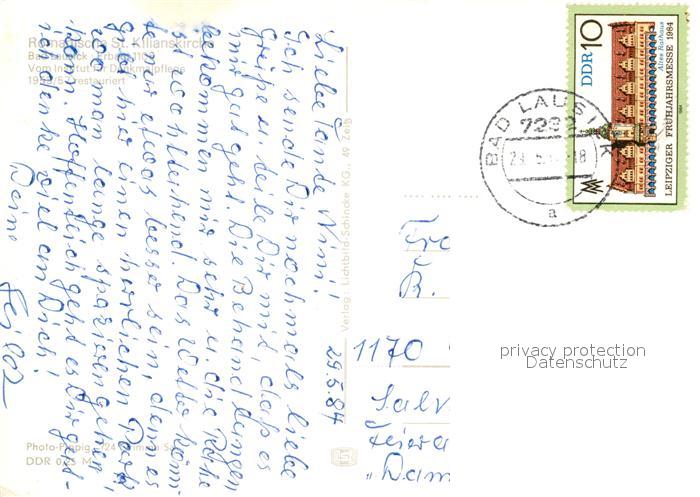 Romanische St. Kilianskirche
Bad Lausick - Erbaut 110
Vom Institut für Denkmalpflege
195 /5 restauriert
29.5.84
Liebe Tante Nini!
Ich sende Dir nochmals liebe
Grüße u. teile Dir mit, daß es
mir gut geht. Die Behandlungen
bekommen mir sehr u. die Ruhe
ist wohltuend. Das Wetter könn-
te nur etwas besser sein, denn es
gibt hier einen herrlichen Park
wo man lange spazieren gehen
kann. Hoffentlich geht es Dir gut
ich denke viel an Dich!
Deine
Photo-Pippig, 724 Grimma-Sa.
DDR 0,25 M
Verlag: Lichtbild-Schincke KG., 49 Zeitz
BAD LAUSICK
7282
a
DDR 10
Altes Rathaus
LEIPZIGER FRÜHJAHRSMESSE 1984
1984
MM
Fra
K.
1170
Salv
Feiera
"Dam
privacy protection
Datenschutz